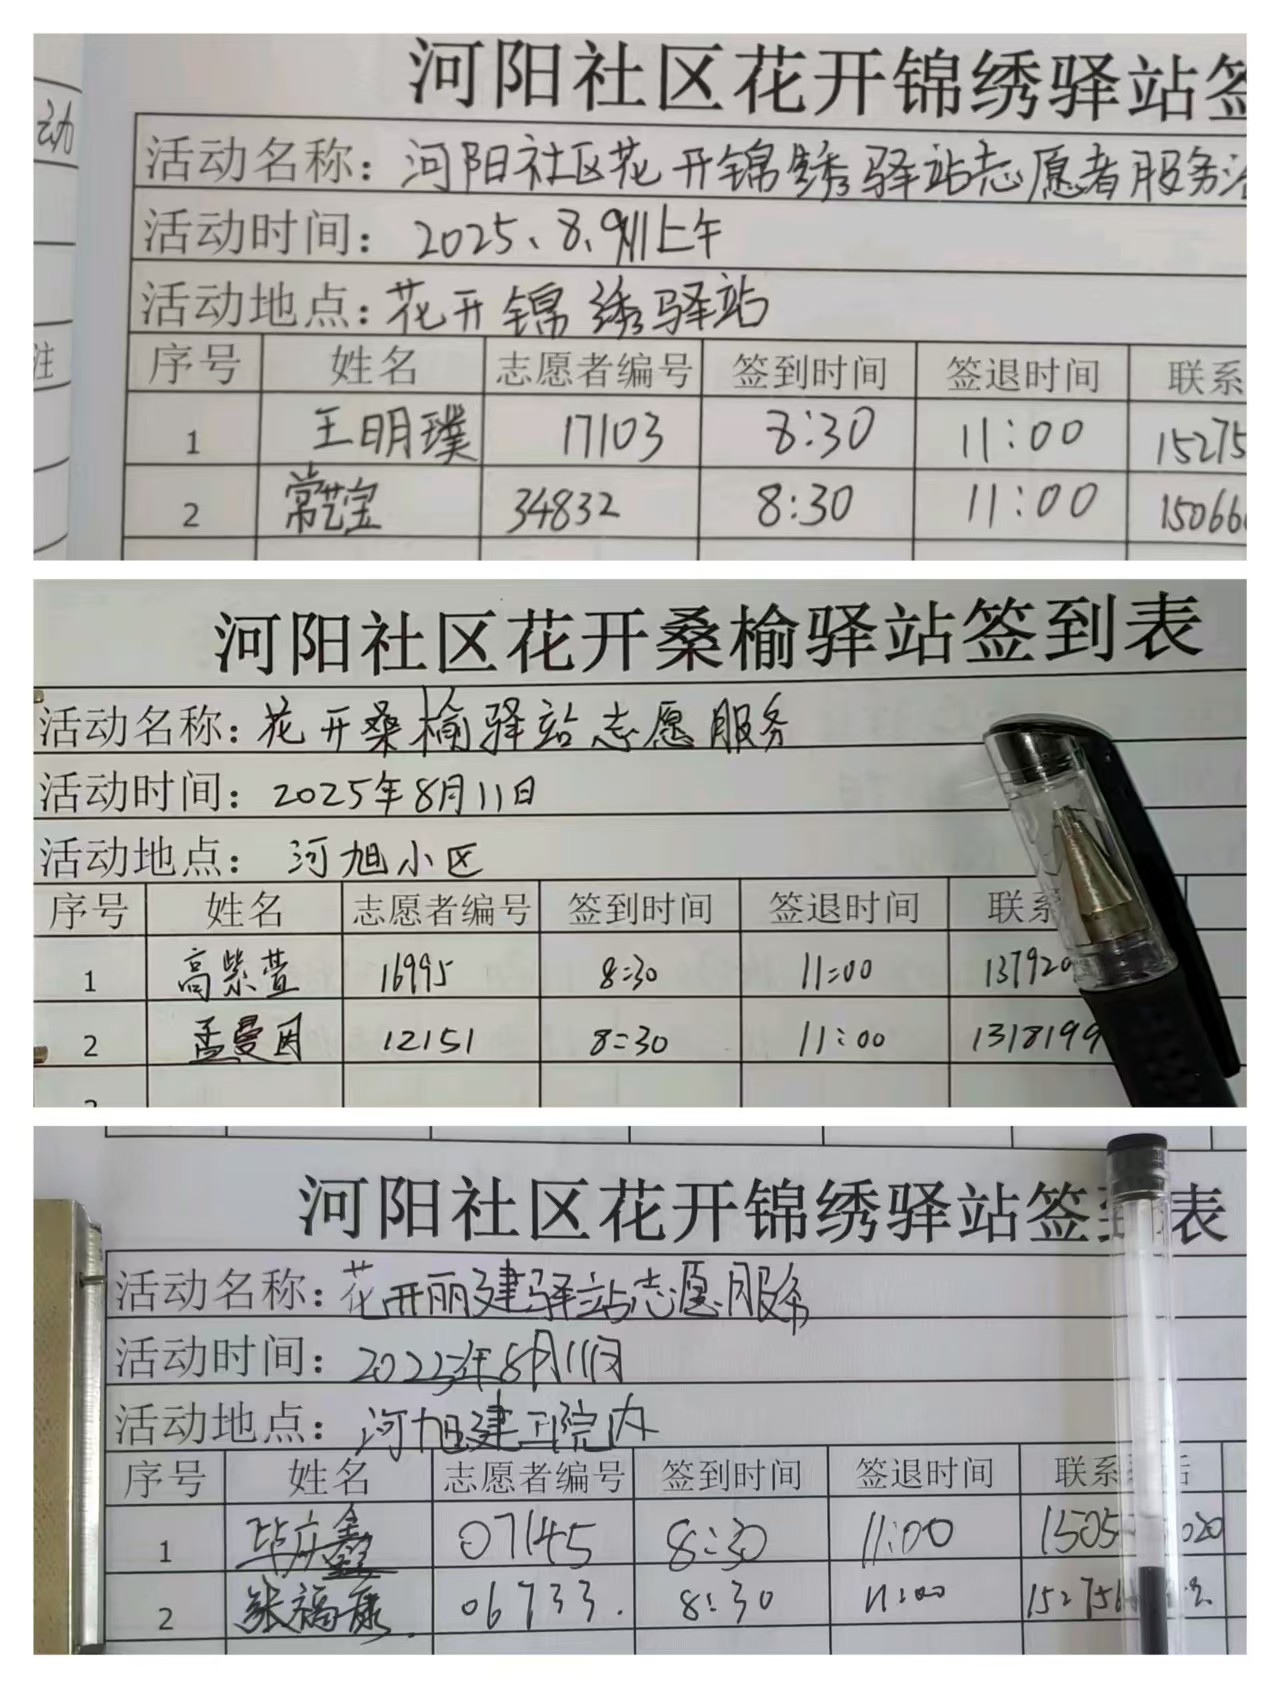 动
注
河阳社区花开锦绣驿站签
活动名称：河阳社区花开锦绣驿站志愿者服务活
活动时间：2025、8、11上午
活动地点：花开锦绣驿站
序号 姓名 志愿者编号 签到时间 签退时间 联系
1 王明璞 17103 8:30 11:00 15275
2 常艺宝 34832 8:30 11:00 15066
河阳社区花开桑榆驿站签到表
活动名称：花开桑榆驿站志愿服务
活动时间：2025年8月11日
活动地点：河旭小区
序号 姓名 志愿者编号 签到时间 签退时间 联系
1 高紫萱 16995 8:30 11:00 137920
2 孟曼因 12151 8:30 11:00 1318199
河阳社区花开锦绣驿站签到表
活动名称：花开丽建驿站志愿服务
活动时间：2025年8月11日
活动地点：河旭建卫院内
序号 姓名 志愿者编号 签到时间 签退时间 联系 话
1 毕庆鑫 07145 8:30 11:00 1505 020
2 张福康 06733. 8:30 11:00 152756